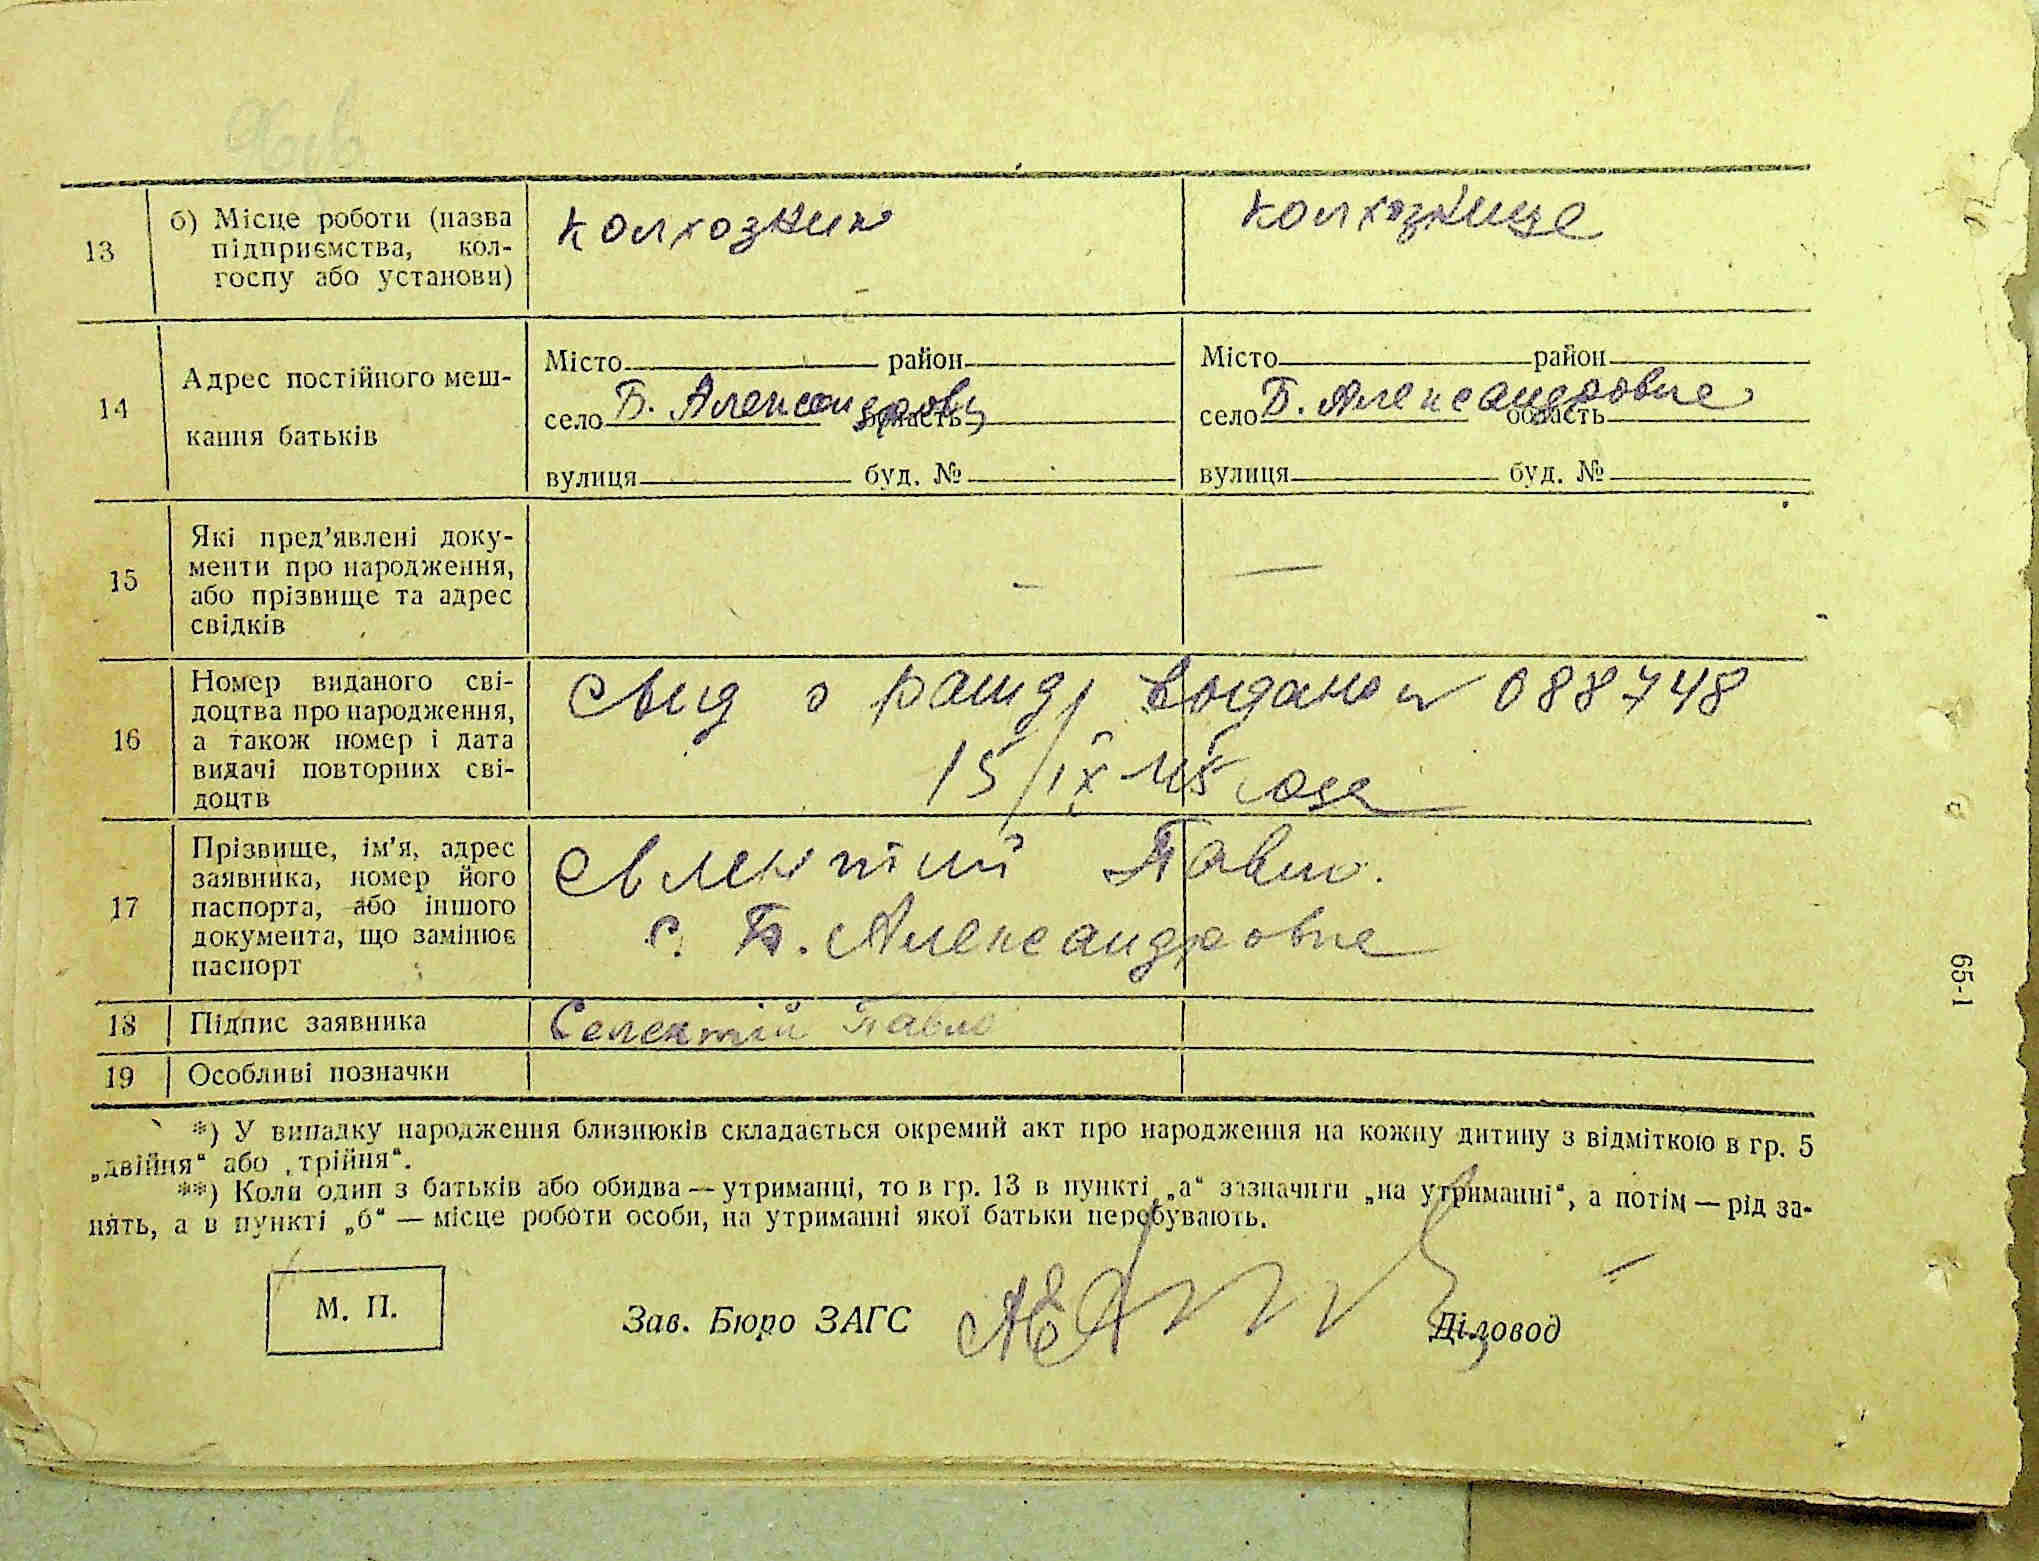 13
б) Місце роботи (назва
підприємства, кол-
госпу або установи)
колхозник
колхознице
14
Адрес постійного меш-
кання батьків
Місто район
село Б. Александровц область
вулиця буд. №
Місто район
село Б. Александровке область
вулиця буд. №
15
Які пред'явлені доку-
менти про народження,
або прізвище та адрес
свідків
—
16
Номер виданого сві-
доцтва про народження,
а також номер і дата
видачі повторних сві-
доцтв
Свид о рожд, выдано № 088748
15/IX 45 года
17
Прізвище, ім'я, адрес
заявника, номер його
паспорта, або іншого
документа, що замінює
паспорт
Павло.
с. Б. Александровке
18
Підпис заявника
Селектій Павло
19
Особливі позначки
*) У випадку народження близнюків складається окремий акт про народження на кожну дитину з відміткою в гр. 5
„двійня“ або „трійня“.
**) Коли один з батьків або обидва — утриманці, то в гр. 13 в пункті „а“ зазначити „на утриманні“, а потім — рід за-
нять, а в пункті „б“ — місце роботи особи, на утриманні якої батьки перебувають.
М. П.
Зав. Бюро ЗАГС
Діловод
65-1